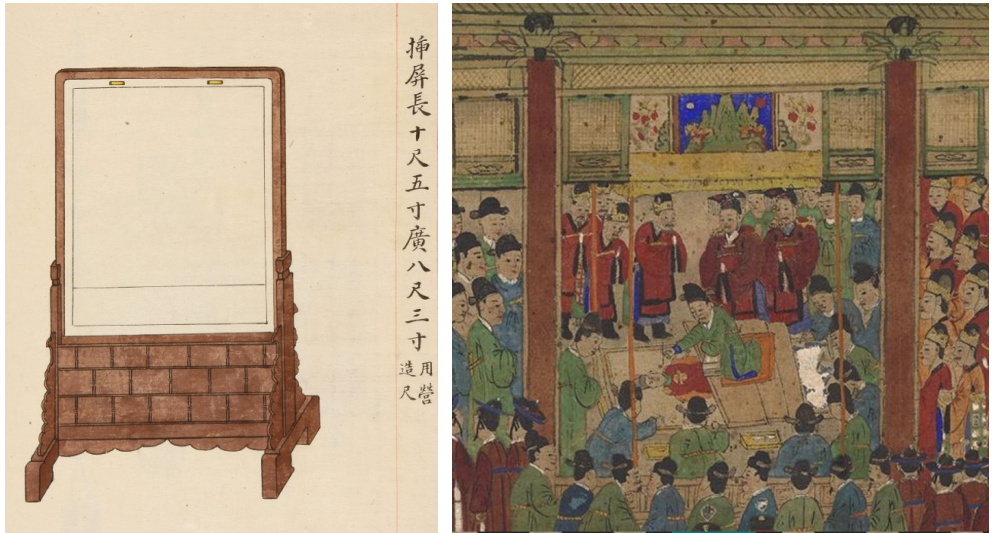 挿屏長十尺五寸廣八尺三寸
用營
造尺